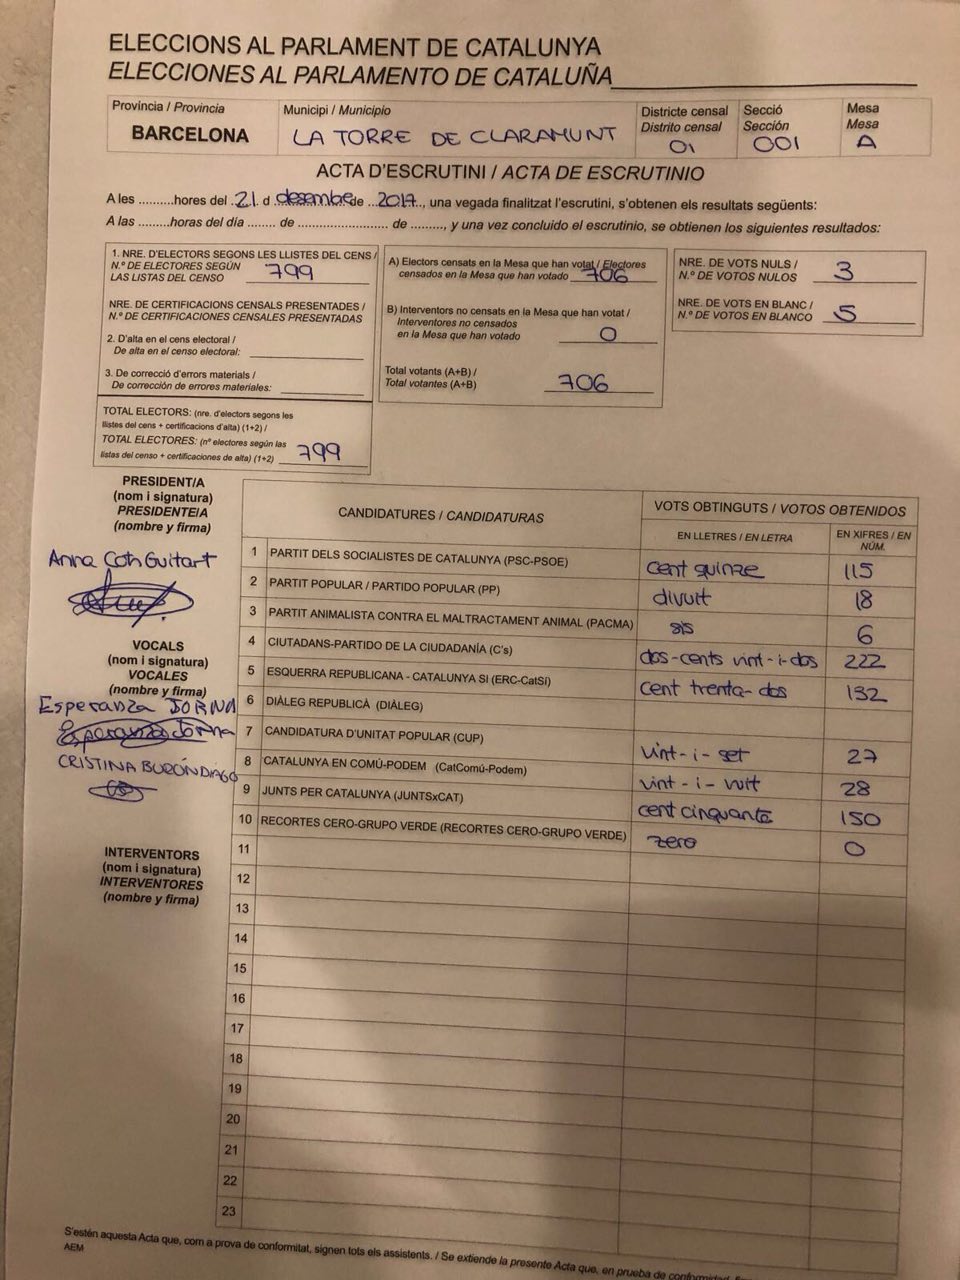 ELECCIONS AL PARLAMENT DE CATALUNYA
ELECCIONES AL PARLAMENTO DE CATALUÑA
Província / Provincia
BARCELONA
Municipi / Municipio
LA TORRE DE CLARAMUNT
Districte censal
Distrito censal
01
Secció
Sección
001
Mesa
Mesa
A
ACTA D'ESCRUTINI / ACTA DE ESCRUTINIO
A les ..........hores del .21. d desembre de ..2017.., una vegada finalitzat l'escrutini, s'obtenen els resultats següents:
A las .........horas del día ........ de ........................ de ........., y una vez concluido el escrutinio, se obtienen los siguientes resultados:
1. NRE. D'ELECTORS SEGONS LES LLISTES DEL CENS /
N.º DE ELECTORES SEGÚN
LAS LISTAS DEL CENSO
799
NRE. DE CERTIFICACIONS CENSALS PRESENTADES /
N.º DE CERTIFICACIONES CENSALES PRESENTADAS
2. D'alta en el cens electoral /
De alta en el censo electoral:
3. De correcció d'errors materials /
De corrección de errores materiales:
TOTAL ELECTORS: (nre. d'electors segons les
llistes del cens + certificacions d'alta) (1+2) /
TOTAL ELECTORES: (nº electores según las
listas del censo + certificaciones de alta) (1+2)
799
A) Electors censats en la Mesa que han votat / Electores
censados en la Mesa que han votado
706
B) Interventors no censats en la Mesa que han votat /
Interventores no censados
en la Mesa que han votado
0
Total votants (A+B) /
Total votantes (A+B)
706
NRE. DE VOTS NULS /
N.º DE VOTOS NULOS
3
NRE. DE VOTS EN BLANC /
N.º DE VOTOS EN BLANCO
5
PRESIDENT/A
(nom i signatura)
PRESIDENTE/A
(nombre y firma)
Anna Coth Guitart
VOCALS
(nom i signatura)
VOCALES
(nombre y firma)
Esperanza JORNA
Esperanza Jorna
CRISTINA BURÓN DIAGO
INTERVENTORS
(nom i signatura)
INTERVENTORES
(nombre y firma)
CANDIDATURES / CANDIDATURAS
VOTS OBTINGUTS / VOTOS OBTENIDOS
EN LLETRES / EN LETRA
EN XIFRES / EN NÚM.
1 PARTIT DELS SOCIALISTES DE CATALUNYA (PSC-PSOE) cent quinze 115
2 PARTIT POPULAR / PARTIDO POPULAR (PP) divuit 18
3 PARTIT ANIMALISTA CONTRA EL MALTRACTAMENT ANIMAL (PACMA) sis 6
4 CIUTADANS-PARTIDO DE LA CIUDADANÍA (C's) dos-cents vint-i-dos 222
5 ESQUERRA REPUBLICANA - CATALUNYA SÍ (ERC-CatSí) cent trenta-dos 132
6 DIÀLEG REPUBLICÀ (DIÀLEG)
7 CANDIDATURA D'UNITAT POPULAR (CUP) vint-i-set 27
8 CATALUNYA EN COMÚ-PODEM (CatComú-Podem) vint-i-vuit 28
9 JUNTS PER CATALUNYA (JUNTSxCAT) cent cinquanta 150
10 RECORTES CERO-GRUPO VERDE (RECORTES CERO-GRUPO VERDE) zero 0
11
12
13
14
15
16
17
18
19
20
21
22
23
S'estén aquesta Acta que, com a prova de conformitat, signen tots els assistents. / Se extiende la presente Acta que, en prueba de conformidad,
AEM